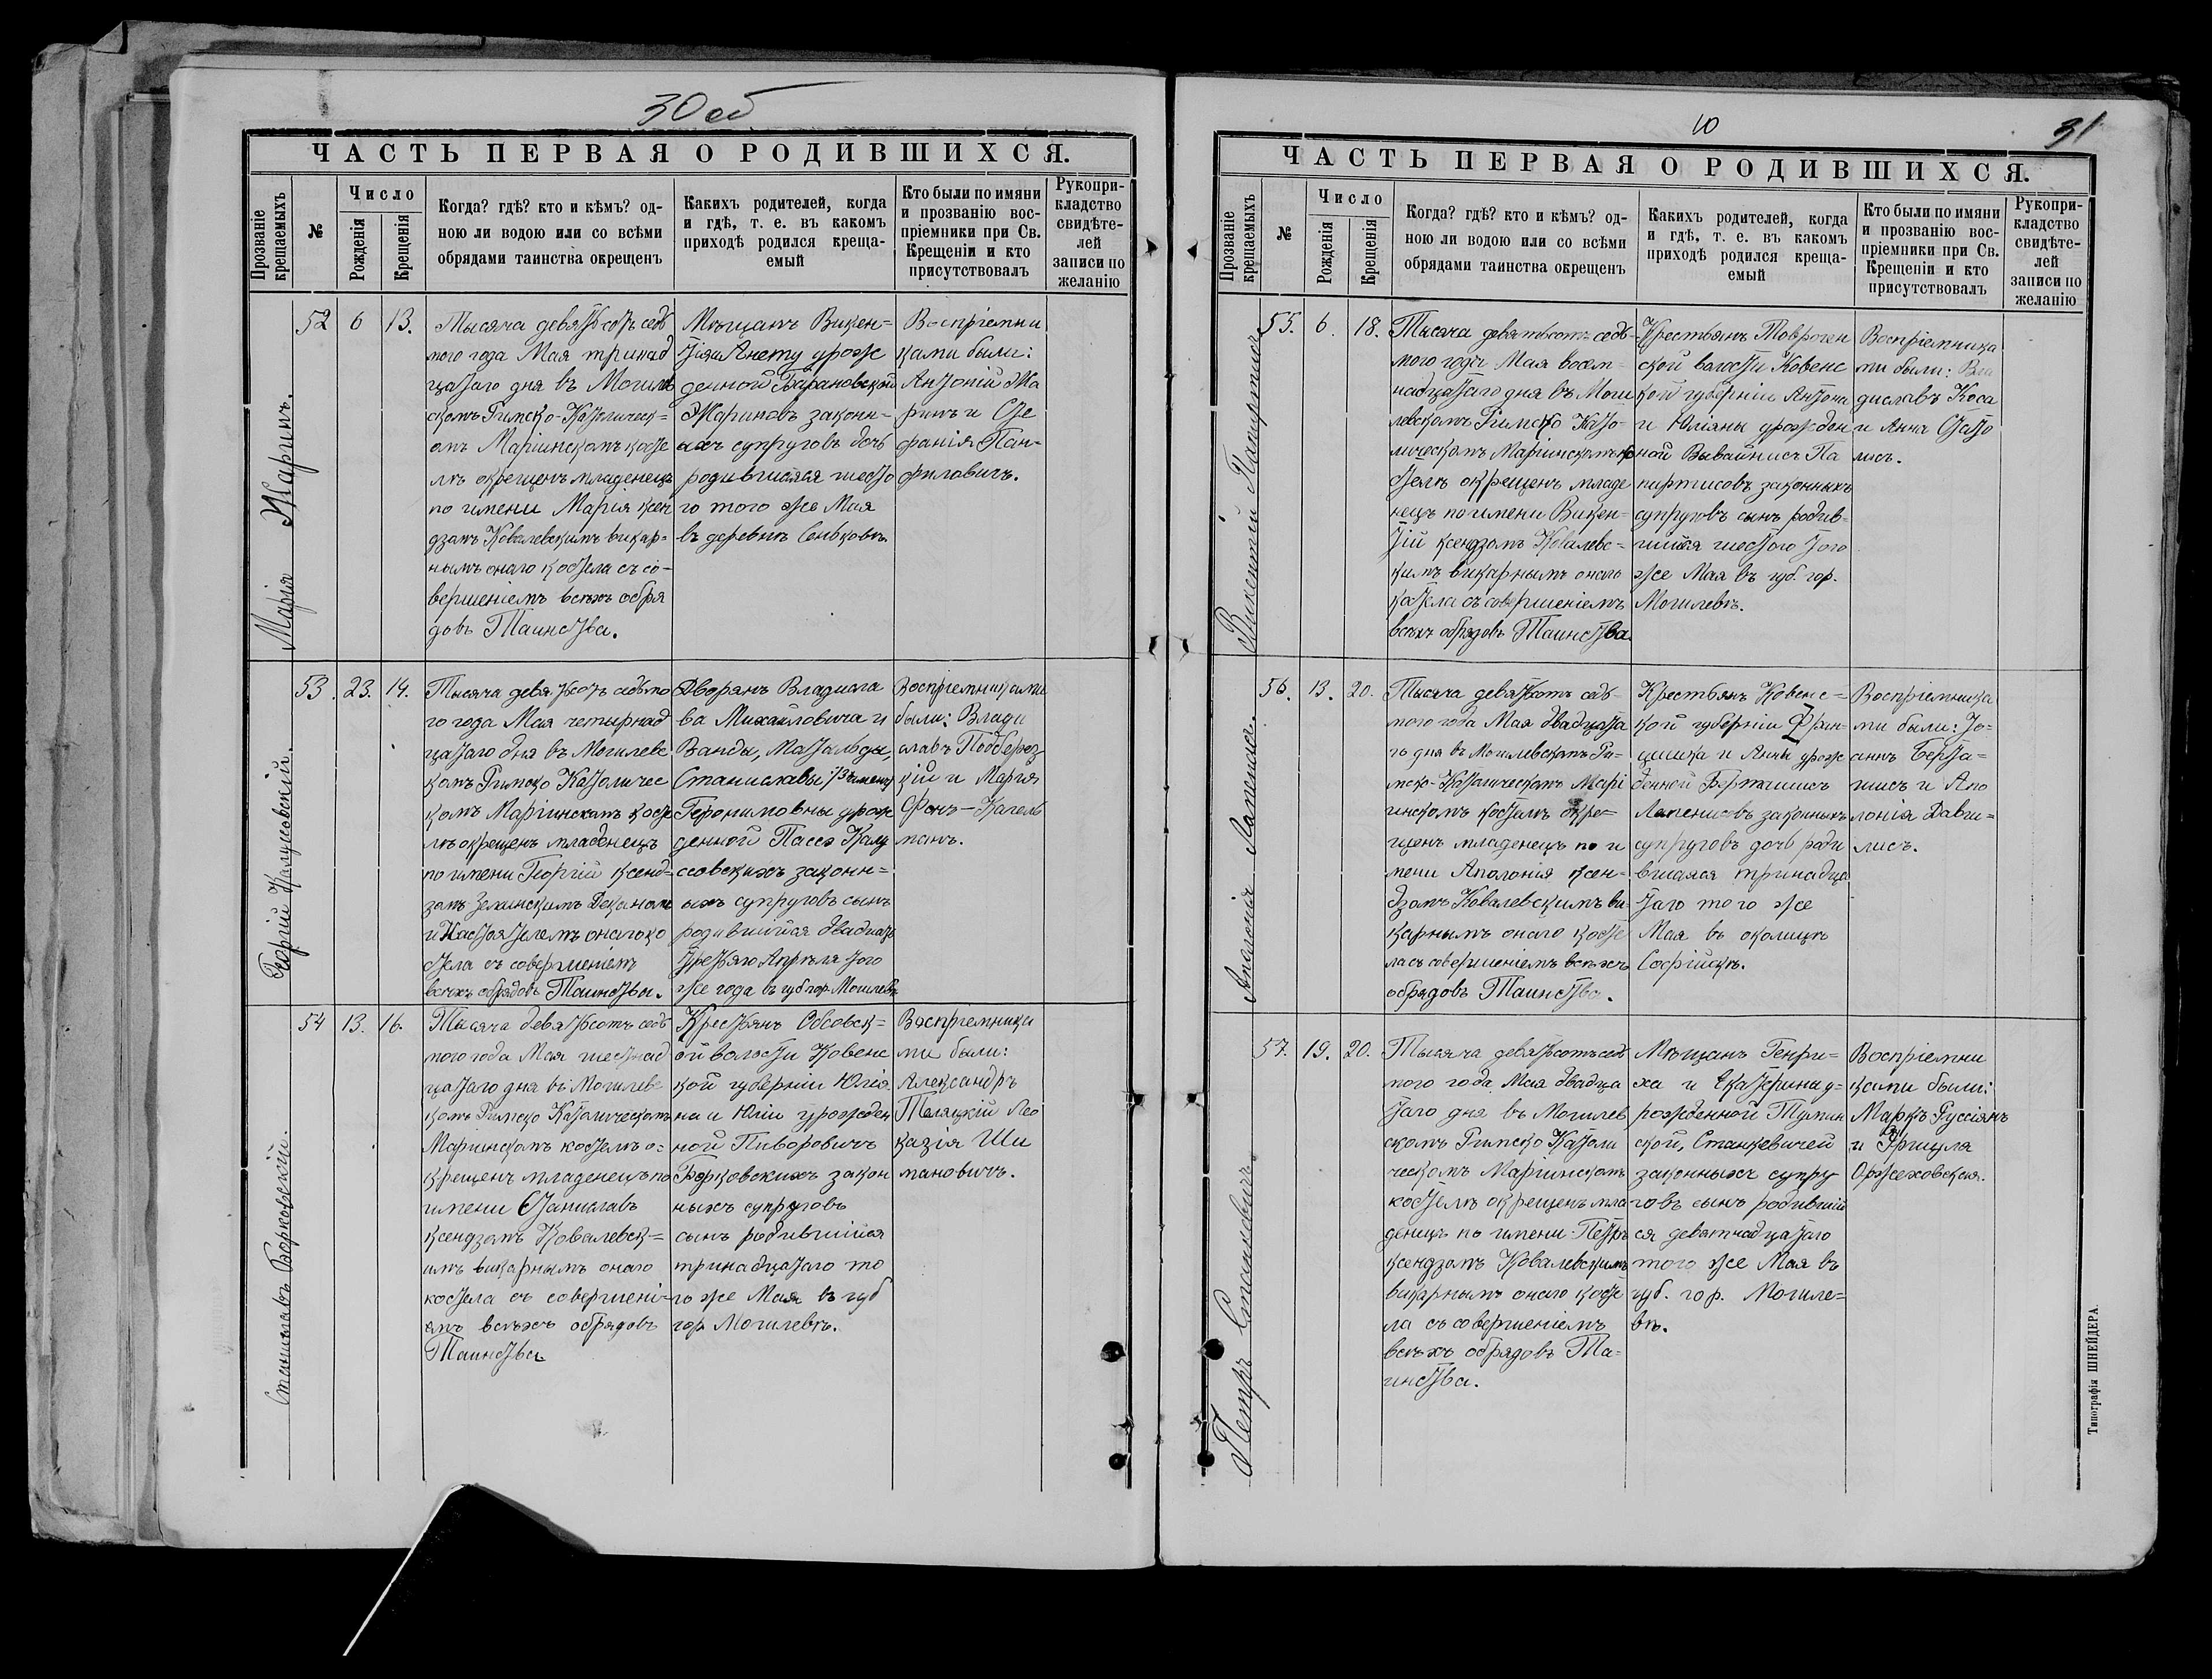 30 об
ЧАСТЬ ПЕРВАЯ О РОДИВШИХСЯ.
Прозваніе крещаемыхъ
№
Число
Рожденія
Крещенія
Когда? гдѣ? кто и кѣмъ? од-
ною ли водою или со всѣми
обрядами таинства окрещенъ
Какихъ родителей, когда
и гдѣ, т. е. въ какомъ
приходѣ родился креща-
емый
Кто были по имяни
и прозванію вос-
пріемники при Св.
Крещеніи и кто
присутствовалъ
Рукопри-
кладство
свидѣте-
лей
записи по
желанію
Марія Жаринъ.
52
6
13.
Тысяча девятьсотъ седь
мого года Мая тринад
цатаго дня въ Могилев
скомъ Римско-Католическ=
омъ Маріинскомъ косте
лѣ окрещенъ младенецъ
по имени Марія ксен
дзомъ Ковалевскимъ викар=
нымъ онаго костела съ со-
вершеніемъ всѣхъ обря
довъ Таинства.
Мѣщанъ Викен=
тія и Анету урож
денной Барановской
Жариновъ законн-
ыхъ супруговъ дочь
родившаяся шесто
го того же Мая
въ деревнѣ Сеньковѣ
Воспріемни
ками были:
Антоній Жа
ринъ и Сте
фанія Пан-
филовичъ.
Георгій Калусовскій.
53.
23.
14.
Тысяча девятьсотъ седьмо
го года Мая четырнад
цатаго дня въ Могилевс
комъ Римско Католичес
комъ Маріинскомъ косте
лѣ окрещенъ младенецъ
по имени Георгій ксенд-
зомъ Зелинскимъ Деканомъ
и Настоятелемъ онаго ко
стела съ совершеніемъ
всѣхъ обрядовъ Таинства.
Дворянъ Владисла
ва Михайловича и
Ванды, Матильды,
Станиславы /3 имени/
Геронимовны урож
денной Пассэ Калу
ссовскихъ законн=
ыхъ супруговъ сынъ
родившійся двадцать
третьяго Апрѣля того
же года въ губ. гор. Могилевѣ
Воспріемниками
были: Влади
славъ Подберез
кій и Марія
Фонъ-Кагель
манъ.
Станиславъ Борковскій.
54
13.
16.
Тысяча девятьсотъ седь
мого года Мая шестнад
цатаго дня въ Могилевс
комъ Римско Католическомъ
Маріинскомъ костелѣ о=
крещенъ младенецъ по
имени Станиславъ
ксендзомъ Ковалевск=
имъ викарнымъ онаго
костела съ совершені-
емъ всѣхъ обрядовъ
Таинства
Крестьянъ
волости Ковенс
кой губерніи Юліа
на и Юліи урожден
ной Пиворовичъ
Борковскихъ закон
ныхъ супруговъ
сынъ родившійся
тринадцатаго то
го же Мая въ губ
гор. Могилевѣ.
Воспріемника
ми были:
Александръ
Поляцкій Лео
кадія Ши
мановичъ.
10
31
ЧАСТЬ ПЕРВАЯ О РОДИВШИХСЯ.
Прозваніе крещаемыхъ
№
Число
Рожденія
Крещенія
Когда? гдѣ? кто и кѣмъ? од-
ною ли водою или со всѣми
обрядами таинства окрещенъ
Какихъ родителей, когда
и гдѣ, т. е. въ какомъ
приходѣ родился креща-
емый
Кто были по имяни
и прозванію вос-
пріемники при Св.
Крещеніи и кто
присутствовалъ
Рукопри-
кладство
свидѣте-
лей
записи по
желанію
Викентій Папиртисъ
55.
6.
18.
Тысяча девятьсотъ седь-
мого года Мая восем-
надцатаго дня въ Моги
левскомъ Римско Като-
лическомъ Маріинскомъ ко
стелѣ окрещенъ младе
нецъ по имени Викен-
тій ксендзомъ Ковалевс=
кимъ викарнымъ онаго
костела съ совершеніемъ
всѣхъ обрядовъ Таинства
Крестьянъ Товроген
ской волости Ковенс
кой губерніи Антона
и Юліяны урожден
ной Вывайнисъ Па
пиртисовъ законныхъ
супруговъ сынъ родив=
шійся шестого того
же Мая въ губ. гор.
Могилевѣ.
Воспріемника
ми были: Вла
диславъ Коса
и Анна Стато
лисъ.
Аполонія Лапенисъ
56.
13.
20.
Тысяча девятьсотъ седь-
мого года Мая двадцата
го дня въ Могилевскомъ Ри-
мско-Католическомъ Марі
инскомъ костелѣ окре=
щенъ младенецъ по и
мени Аполонія ксен-
дзомъ Ковалевскимъ ви-
карнымъ онаго косте
ла съ совершеніемъ всѣхъ
обрядовъ Таинства.
Крестьянъ Ковенс=
кой губерніи Фран-
цишка и Анны урож
денной
Лапенисовъ законныхъ
супруговъ дочь роди
вшаяся тринадца
таго того же
Мая въ околицѣ
Софійскѣ.
Воспріемника
ми были: Іо-
аннъ Берта=
шисъ и Апо
лонія Давги=
лисъ.
Петръ Станкевичъ
57.
19.
20.
Тысяча девятьсотъ седь
мого года Мая двадца
таго дня въ Могилев
скомъ Римско Католи
ческомъ Маріинскомъ
костелѣ окрещенъ мла
денецъ по имени Петръ
ксендзомъ Ковалевскимъ
викарнымъ онаго косте
ла съ совершеніемъ
всѣхъ обрядовъ Та=
инства.
Мѣщанъ Генри=
ха и Екатерины у=
рожденной Тумин
ской, Станкевичей
законныхъ супру
говъ сынъ родившій
ся девятнадцатаго
того же Мая въ
губ. гор. Могиле=
вѣ.
Воспріемни
ками были:
Маркъ Руссіянъ
и
Оржеховская.
Типографія ШНЕЙДЕРА.